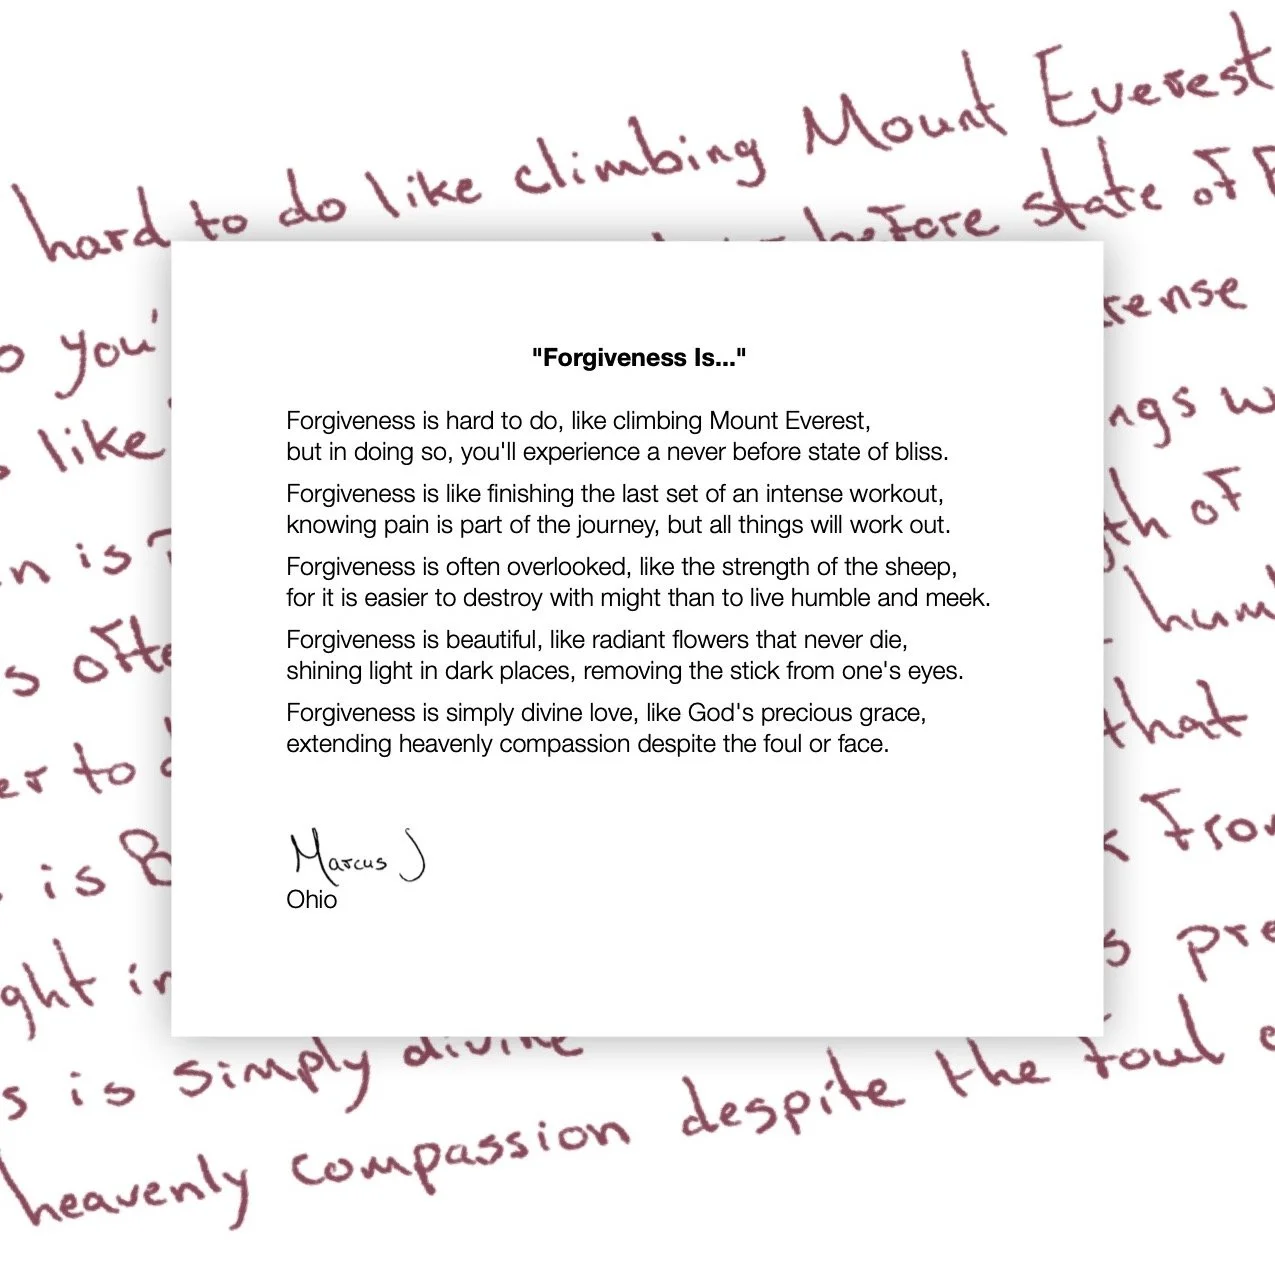 hard to do like climbing Mount Everest
before state of
you'
ense
like
ngs
n is
of
s ofte
hum
er to d
that
is B
From
ght in
s pre
s is simply divine
heavenly compassion despite the foul
"Forgiveness Is..."
Forgiveness is hard to do, like climbing Mount Everest,
but in doing so, you'll experience a never before state of bliss.
Forgiveness is like finishing the last set of an intense workout,
knowing pain is part of the journey, but all things will work out.
Forgiveness is often overlooked, like the strength of the sheep,
for it is easier to destroy with might than to live humble and meek.
Forgiveness is beautiful, like radiant flowers that never die,
shining light in dark places, removing the stick from one's eyes.
Forgiveness is simply divine love, like God's precious grace,
extending heavenly compassion despite the foul or face.
Marcus J
Ohio